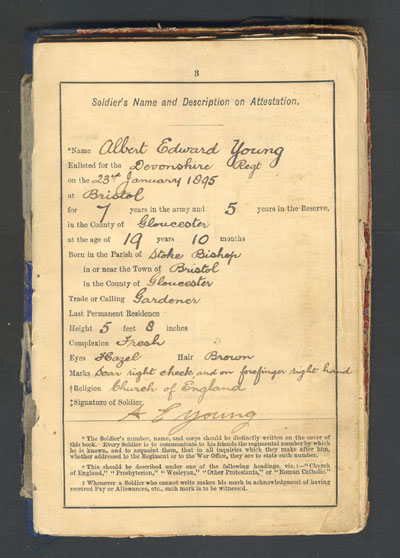 3
Soldier's Name and Description on Attestation.
*Name Albert Edward Young
Enlisted for the Devonshire Regt
on the 23rd January 1895
at Bristol
for 7 years in the army and 5 years in the Reserve,
in the County of Gloucester
at the age of 19 years 10 months
Born in the Parish of Stoke Bishop
in or near the Town of Bristol
in the County of Gloucester
Trade or Calling Gardener
Last Permanent Residence
Height 5 feet 8 inches
Complexion Fresh
Eyes Hazel Hair Brown
Marks Scar right cheek and on forefinger right hand
†Religion Church of England
‡Signature of Soldier
A E Young
* The Soldier's number, name, and corps should be distinctly written on the cover of
this book. Every Soldier is to communicate to his friends the regimental number by which
he is known, and to acquaint them, that in all inquiries which they make after him,
whether addressed to the Regiment or to the War Office, they are to state such number.
† This should be described under one of the following headings, viz.:—"Church
of England," "Presbyterian," "Wesleyan," "Other Protestants," or "Roman Catholic."
‡ Whenever a Soldier who cannot write makes his mark in acknowledgment of having
received Pay or Allowances, etc., such mark is to be witnessed.